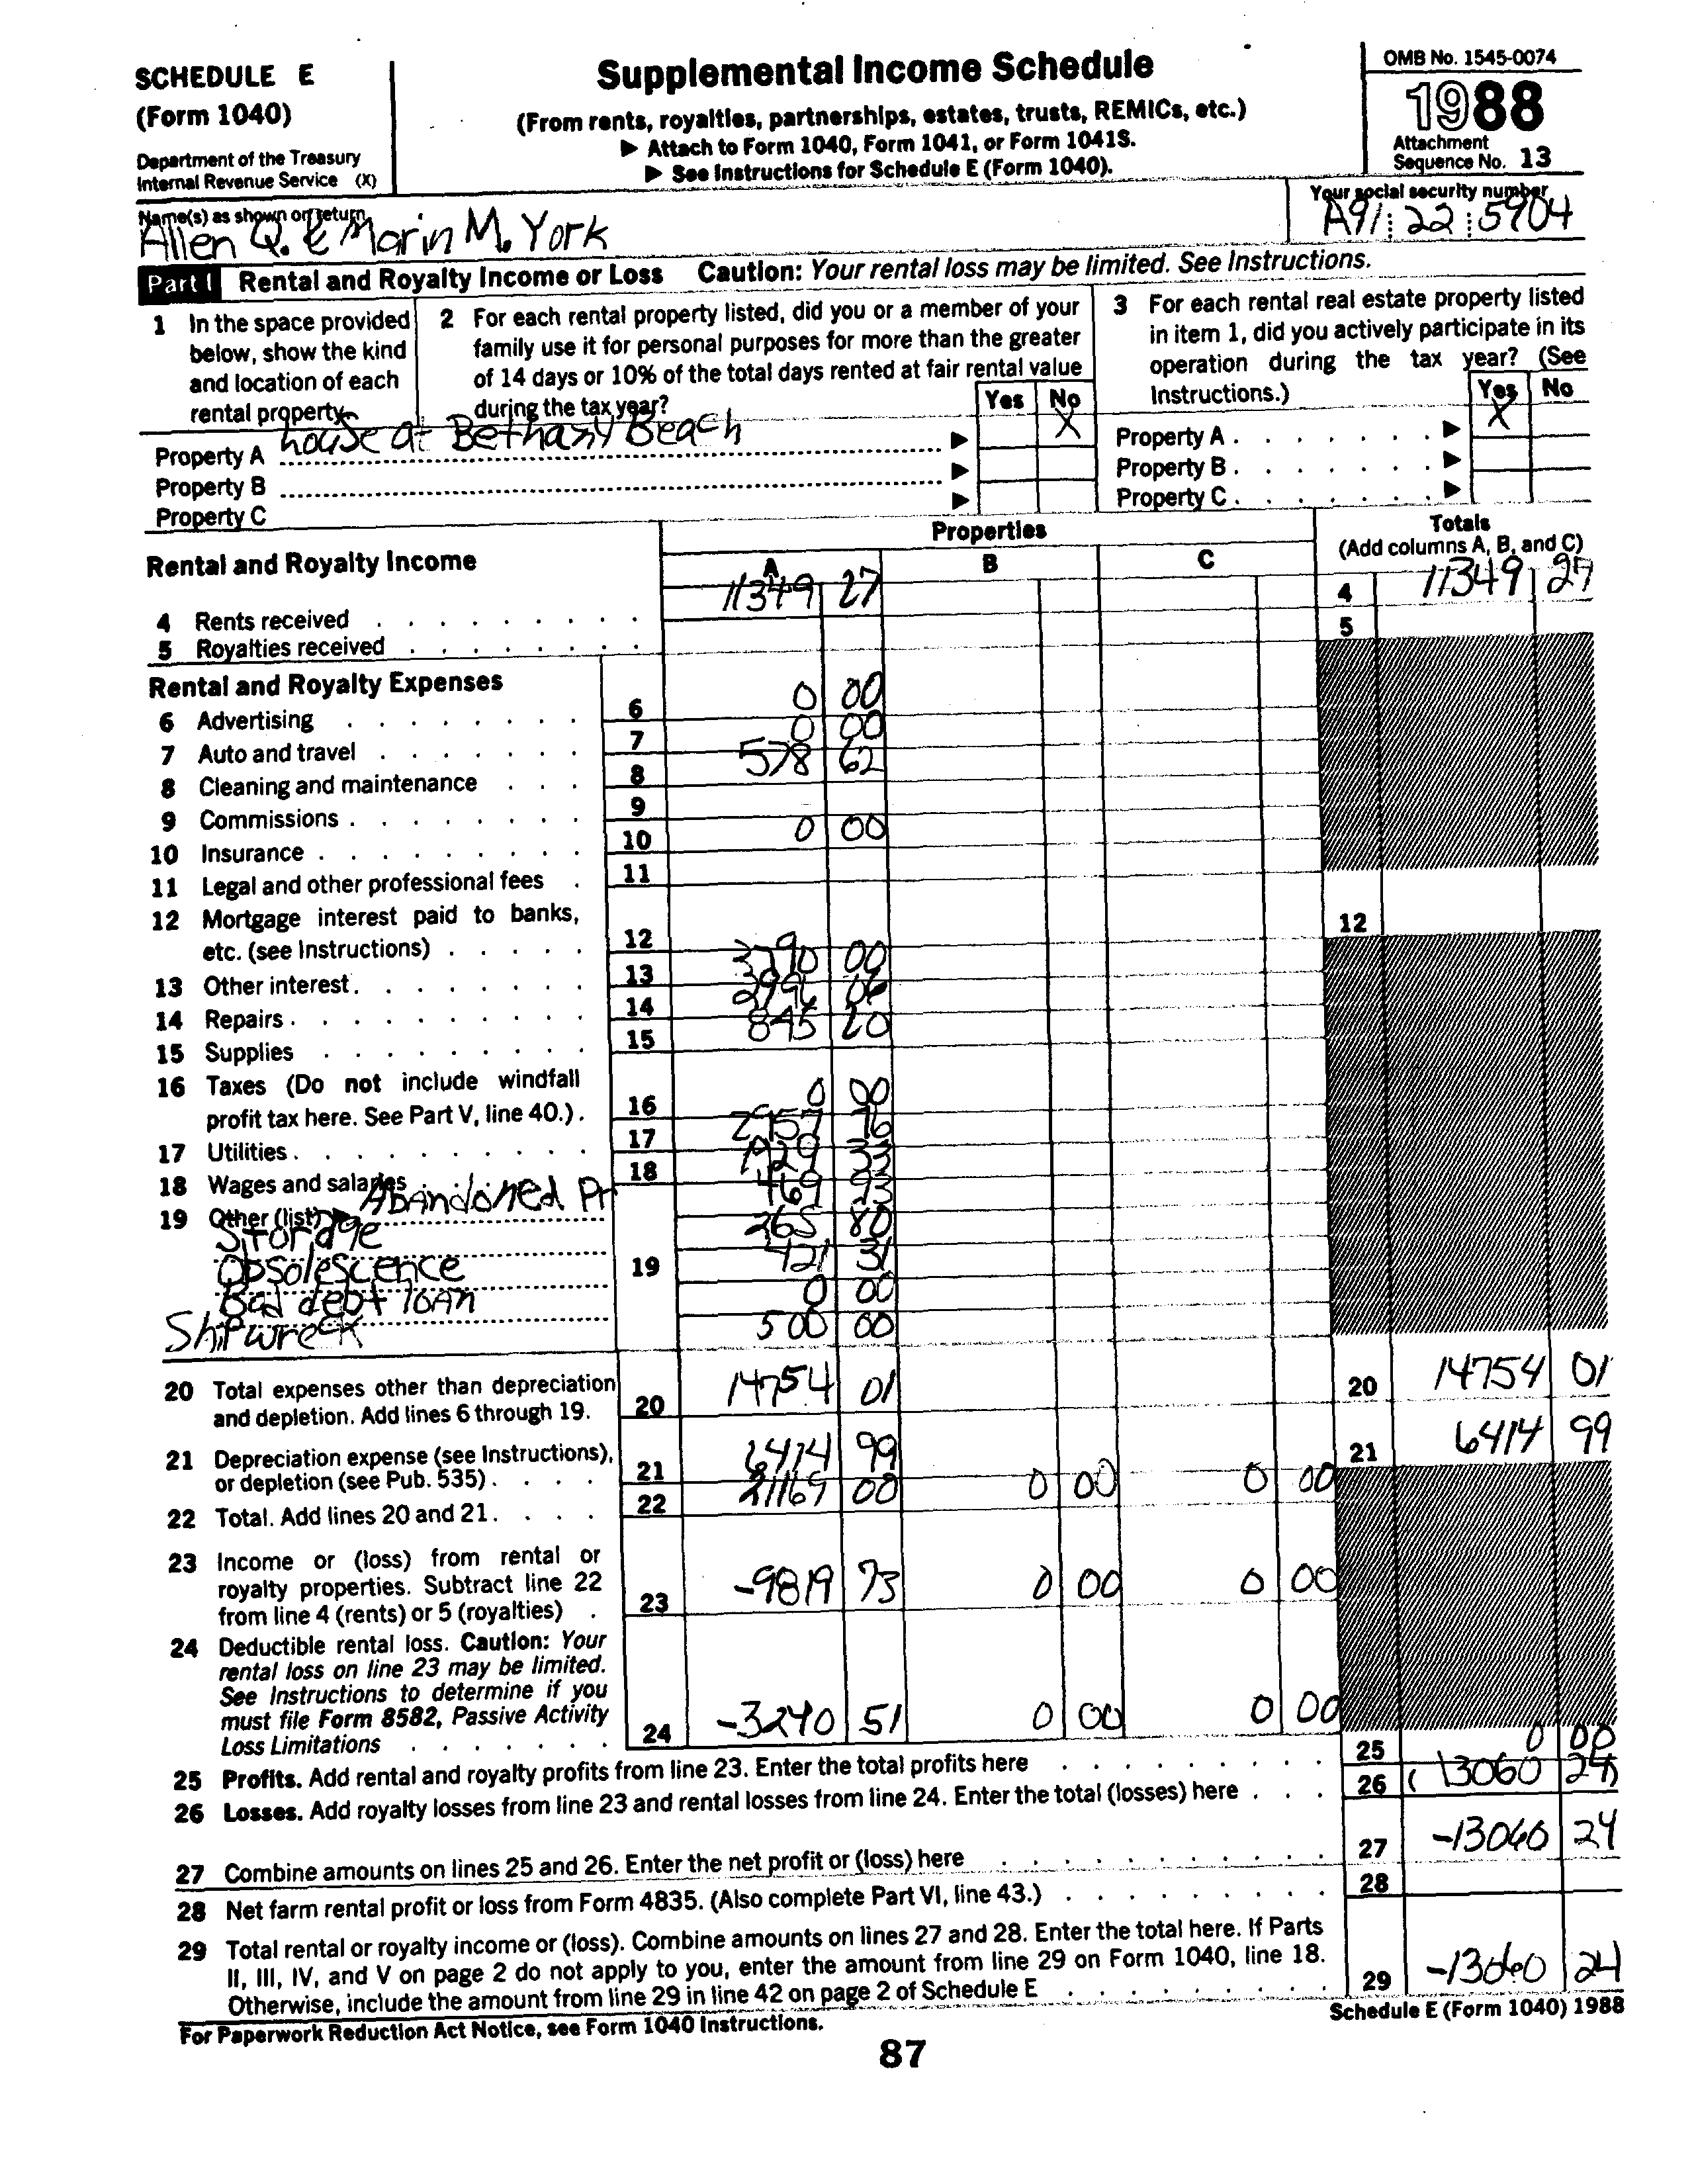 SCHEDULE E
(Form 1040)
Department of the Treasury
Internal Revenue Service (X)
Supplemental Income Schedule
(From rents, royalties, partnerships, estates, trusts, REMICs, etc.)
▶ Attach to Form 1040, Form 1041, or Form 1041S.
▶ See Instructions for Schedule E (Form 1040).
OMB No. 1545-0074
1988
Attachment
Sequence No. 13
Name(s) as shown on return
Allen Q. & Marin M. York
Your social security number
A91 22 5904
Part I Rental and Royalty Income or Loss Caution: Your rental loss may be limited. See Instructions.
1 In the space provided
below, show the kind
and location of each
rental property.
2 For each rental property listed, did you or a member of your
family use it for personal purposes for more than the greater
of 14 days or 10% of the total days rented at fair rental value
during the tax year?
Yes No
3 For each rental real estate property listed
in item 1, did you actively participate in its
operation during the tax year? (See
Instructions.)
Yes No
Property A house at Bethany Beach ▶ X
Property B ▶
Property C ▶
Property A . . . . . . . ▶ X
Property B . . . . . . . ▶
Property C . . . . . . . ▶
Rental and Royalty Income
Properties
A B C
Totals
(Add columns A, B, and C)
4 Rents received 11349 27 4 11349 27
5 Royalties received 5
Rental and Royalty Expenses
6 Advertising 6 0 00
7 Auto and travel 7 0 00
8 Cleaning and maintenance 8 578 62
9 Commissions 9
10 Insurance 10 0 00
11 Legal and other professional fees 11
12 Mortgage interest paid to banks,
etc. (see Instructions) 12 12
13 Other interest 13 3790 00
14 Repairs 14 06
15 Supplies 15 845 20
16 Taxes (Do not include windfall
profit tax here. See Part V, line 40.) 16 0 00
17 Utilities 17 2957 76
18 Wages and salaries 18 1929 33
19 Other (list) ▶ Abandoned Pr 469 93
Storage 265 80
Obsolescence 19 421 31
Bad debt loan 0 00
Shipwreck 500 00
20 Total expenses other than depreciation
and depletion. Add lines 6 through 19. 20 14754 01 20 14754 01
21 Depreciation expense (see Instructions),
or depletion (see Pub. 535) 21 6414 99 21 6414 99
22 Total. Add lines 20 and 21. 22 21169 00 0 00 0 00
23 Income or (loss) from rental or
royalty properties. Subtract line 22
from line 4 (rents) or 5 (royalties) 23 -9819 73 0 00 0 00
24 Deductible rental loss. Caution: Your
rental loss on line 23 may be limited.
See Instructions to determine if you
must file Form 8582, Passive Activity
Loss Limitations 24 -3240 51 0 00 0 00
25 Profits. Add rental and royalty profits from line 23. Enter the total profits here 25 0 00
26 Losses. Add royalty losses from line 23 and rental losses from line 24. Enter the total (losses) here 26 ( 13060 24)
27 Combine amounts on lines 25 and 26. Enter the net profit or (loss) here 27 -13060 24
28 Net farm rental profit or loss from Form 4835. (Also complete Part VI, line 43.) 28
29 Total rental or royalty income or (loss). Combine amounts on lines 27 and 28. Enter the total here. If Parts
II, III, IV, and V on page 2 do not apply to you, enter the amount from line 29 on Form 1040, line 18.
Otherwise, include the amount from line 29 in line 42 on page 2 of Schedule E 29 -13060 24
For Paperwork Reduction Act Notice, see Form 1040 Instructions.
Schedule E (Form 1040) 1988
87